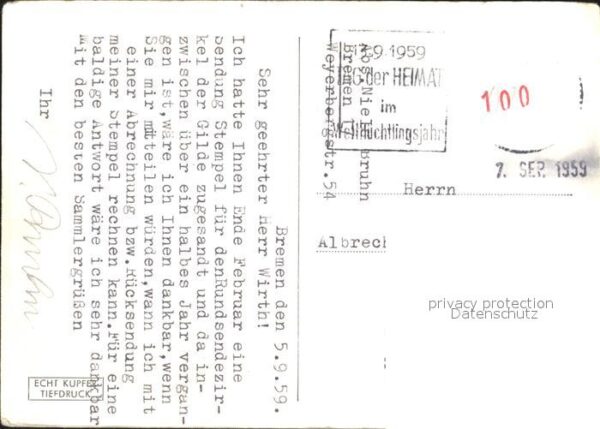 Bremen den 5.9.59.
Sehr geehrter Herr Wirth!
Ich hatte Ihnen Ende Februar eine
Sendung Stempel für denRundsendezir-
kel der Gilde zugesandt und da in-
zwischen über ein halbes Jahr vergan-
gen ist,wäre ich Ihnen dankbar,wenn
Sie mir mitteilen würden,wann ich mit
einer Abrechnung bzw.Rücksendung
meiner Stempel rechnen kann.Für eine
baldige Antwort wäre ich sehr dankbar
Mit den besten Sammlergrüßen
Ihr
ECHT KUPFER
TIEFDRUCK
Abs.Niels Bruhn
Bremen 1
Weyerbergstr.54
9.1959
TAG der HEIMAT
im
Weltflüchtlingsjahr
100
7. SEP. 1959
Herrn
Albrec
privacy protection
Datenschutz